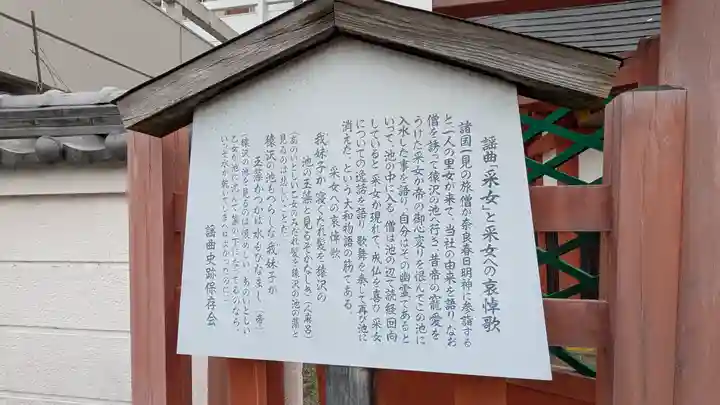 謡曲「采女」と采女への哀悼歌
諸国一見の旅僧が奈良春日明神に参詣する
と一人の里女が来て、当社の由来を語り、なお
僧を誘って猿沢の池へ行き、昔帝の寵愛を
うけた采女が帝の御心変りを恨んでこの池に
入水した事を語り、自分はその幽霊であると
いって、池の中に入る。僧は池の辺で読経回向
していると、采女が現れて、成仏を喜び、采女
についての逸話を語り、歌舞を奏して再び池に
消えた、という大和物語の筋である。
采女への哀悼歌
我妹子が寝くたれ髪を猿沢の
池の玉藻と見るぞかなしき（人麻呂）
（あのいとしい乙女のみだれ髪を猿沢の池の藻と
見るのは悲しいことだ）
猿沢の池もつらしな我妹子が
玉藻かつかば水もひなまし（帝）
（猿沢の池を見るのは恨めしい あのいとしい
乙女が池に沈んで藻の下になってるのなら、
いっそ水が乾いていたらよかったのに）
謡曲史跡保存会